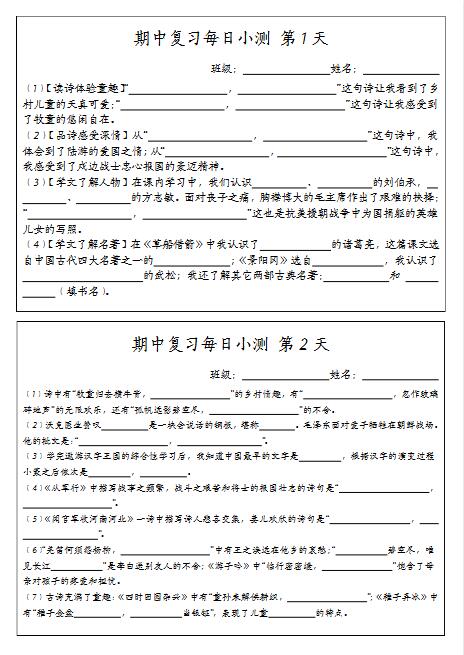 期中复习每日小测 第1天
班级：________姓名：________
（1）【读诗体验童趣】“________，________”这句诗让我看到了乡
村儿童的天真可爱；“________，________”这句诗让我感受到
了牧童的悠闲自在。
（2）【品诗感受深情】从“________，________”这句诗中，我
体会到了陆游的爱国之情；从“________，________”这句诗中，
我感受到了戍边战士忠心报国的豪迈精神。
（3）【学文了解人物】在课内学习中，我们认识________、________的刘伯承，__
______、________的方志敏。面对丧子之痛，胸襟博大的毛主席作出了艰难的抉择：
“________，________”这也是抗美援朝战争中为国捐躯的英雄
儿女的写照。
（4）【学文了解名著】在《草船借箭》中我认识了________的诸葛亮，这篇课文选
自中国古代四大名著之一的________；《景阳冈》选自________，我认识了
________的武松；我还了解其它两部古典名著：________和 ____
____（填书名）。
期中复习每日小测 第2天
班级：________姓名：________
（1）诗中有“牧童归去横牛背，________”的乡村情趣，有“________，忽作玻璃
碎地声”的无限欢乐，还有“孤帆远影碧空尽，________”的不舍。
（2）沃克医生赞叹________是一块会说话的钢板，堪称________。毛泽东面对爱子牺牲在朝鲜战场。
他的批文是：“________，________”。
（3）学完遨游汉字王国的综合性学习后，我知道中国最早的文字是________，根据汉字的演变过程
小篆之后依次是________，________。
（4）《从军行》中描写战事之频繁，战斗之艰苦和将士的报国壮志的诗句是“________，
________”。
（5）《闻官军收河南河北》一诗中描写诗人悲喜交集，妻儿欢欣的诗句是“________，____
________”。
（6）“羌笛何须怨杨柳，________”中有王之涣远在他乡的哀愁；“________碧空尽，唯
见长江________”是李白送别友人的不舍；《游子吟》中“临行密密缝，________”饱含了母
亲对孩子的疼爱和担忧。
（7）古诗充满了童趣：《四时田园杂兴》中有“童孙未解供耕织，________”；《稚子弄冰》中
有“稚子金盆________，________当银钲”，表现了儿童________的特点。